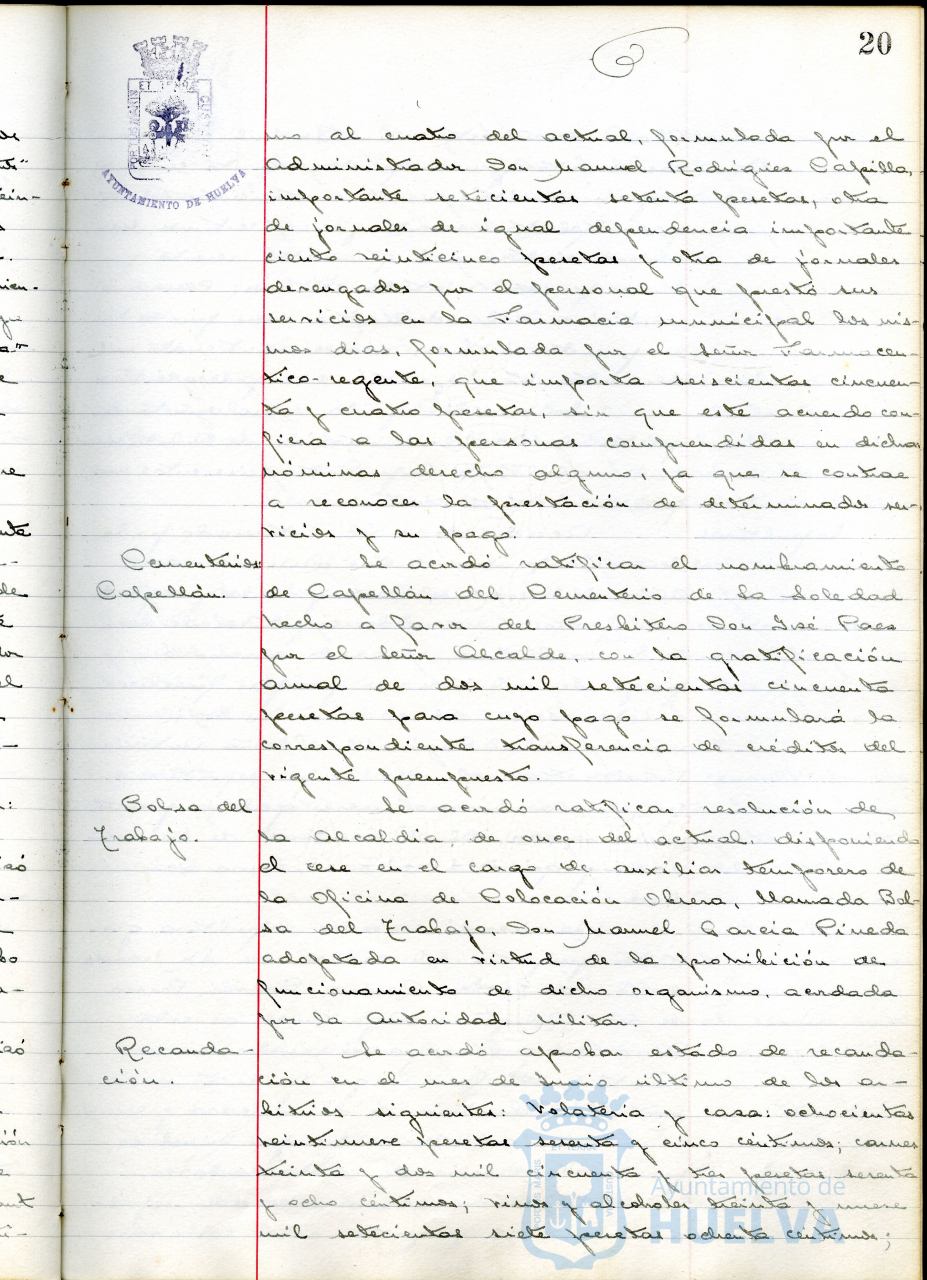 20
ET TERRÆ
AYUNTAMIENTO DE HUELVA
mo al cuatro del actual, formulada por el
Administrador Don Manuel Rodríguez Capilla,
importante setecientas setenta pesetas, otra
de jornales de igual dependencia importante
ciento veinticinco pesetas y otra de jornales
devengados por el personal que prestó sus
servicios en la Farmacia municipal los mis-
mos dias, formulada por el señor Farmaceu-
tico-regente, que importa seiscientas cincuen-
ta y cuatro pesetas, sin que este acuerdo con-
fiera a las personas comprendidas en dichas
nóminas derecho alguno, ya que se contrae
a reconocer la prestación de determinados ser-
vicios y su pago.
Cementerios
Capellán.
Se acordó ratificar el nombramiento
de Capellán del Cementerio de la Soledad
hecho a favor del Presbítero Don José Paes
por el Señor Alcalde, con la gratificación
anual de dos mil setecientas cincuenta
pesetas para cuyo pago se formulará la
correspondiente transferencia de créditos del
vigente presupuesto.
Bolsa del
Trabajo.
Se acordó ratificar resolución de
la Alcaldia, de once del actual, disponiendo
el cese en el cargo de auxiliar temporero de
la Oficina de Colocación Obrera, llamada Bol-
sa del Trabajo, Don Manuel Garcia Pineda
adoptada en virtud de la prohibición de
funcionamiento de dicho organismo, acordada
por la Autoridad Militar.
Recauda-
ción.
Se acordó aprobar estado de recauda-
ción en el mes de Junio último de los ar-
bitrios siguientes: Volateria y casa: ochocientas
veintinueve pesetas sesenta y cinco céntimos; carnes
treinta y dos mil cincuenta y tres pesetas sesenta
y ocho céntimos; vinos y alcoholes treinta y nueve
mil setecientas siete pesetas ochenta centimos;
Ayuntamiento de
HUELVA